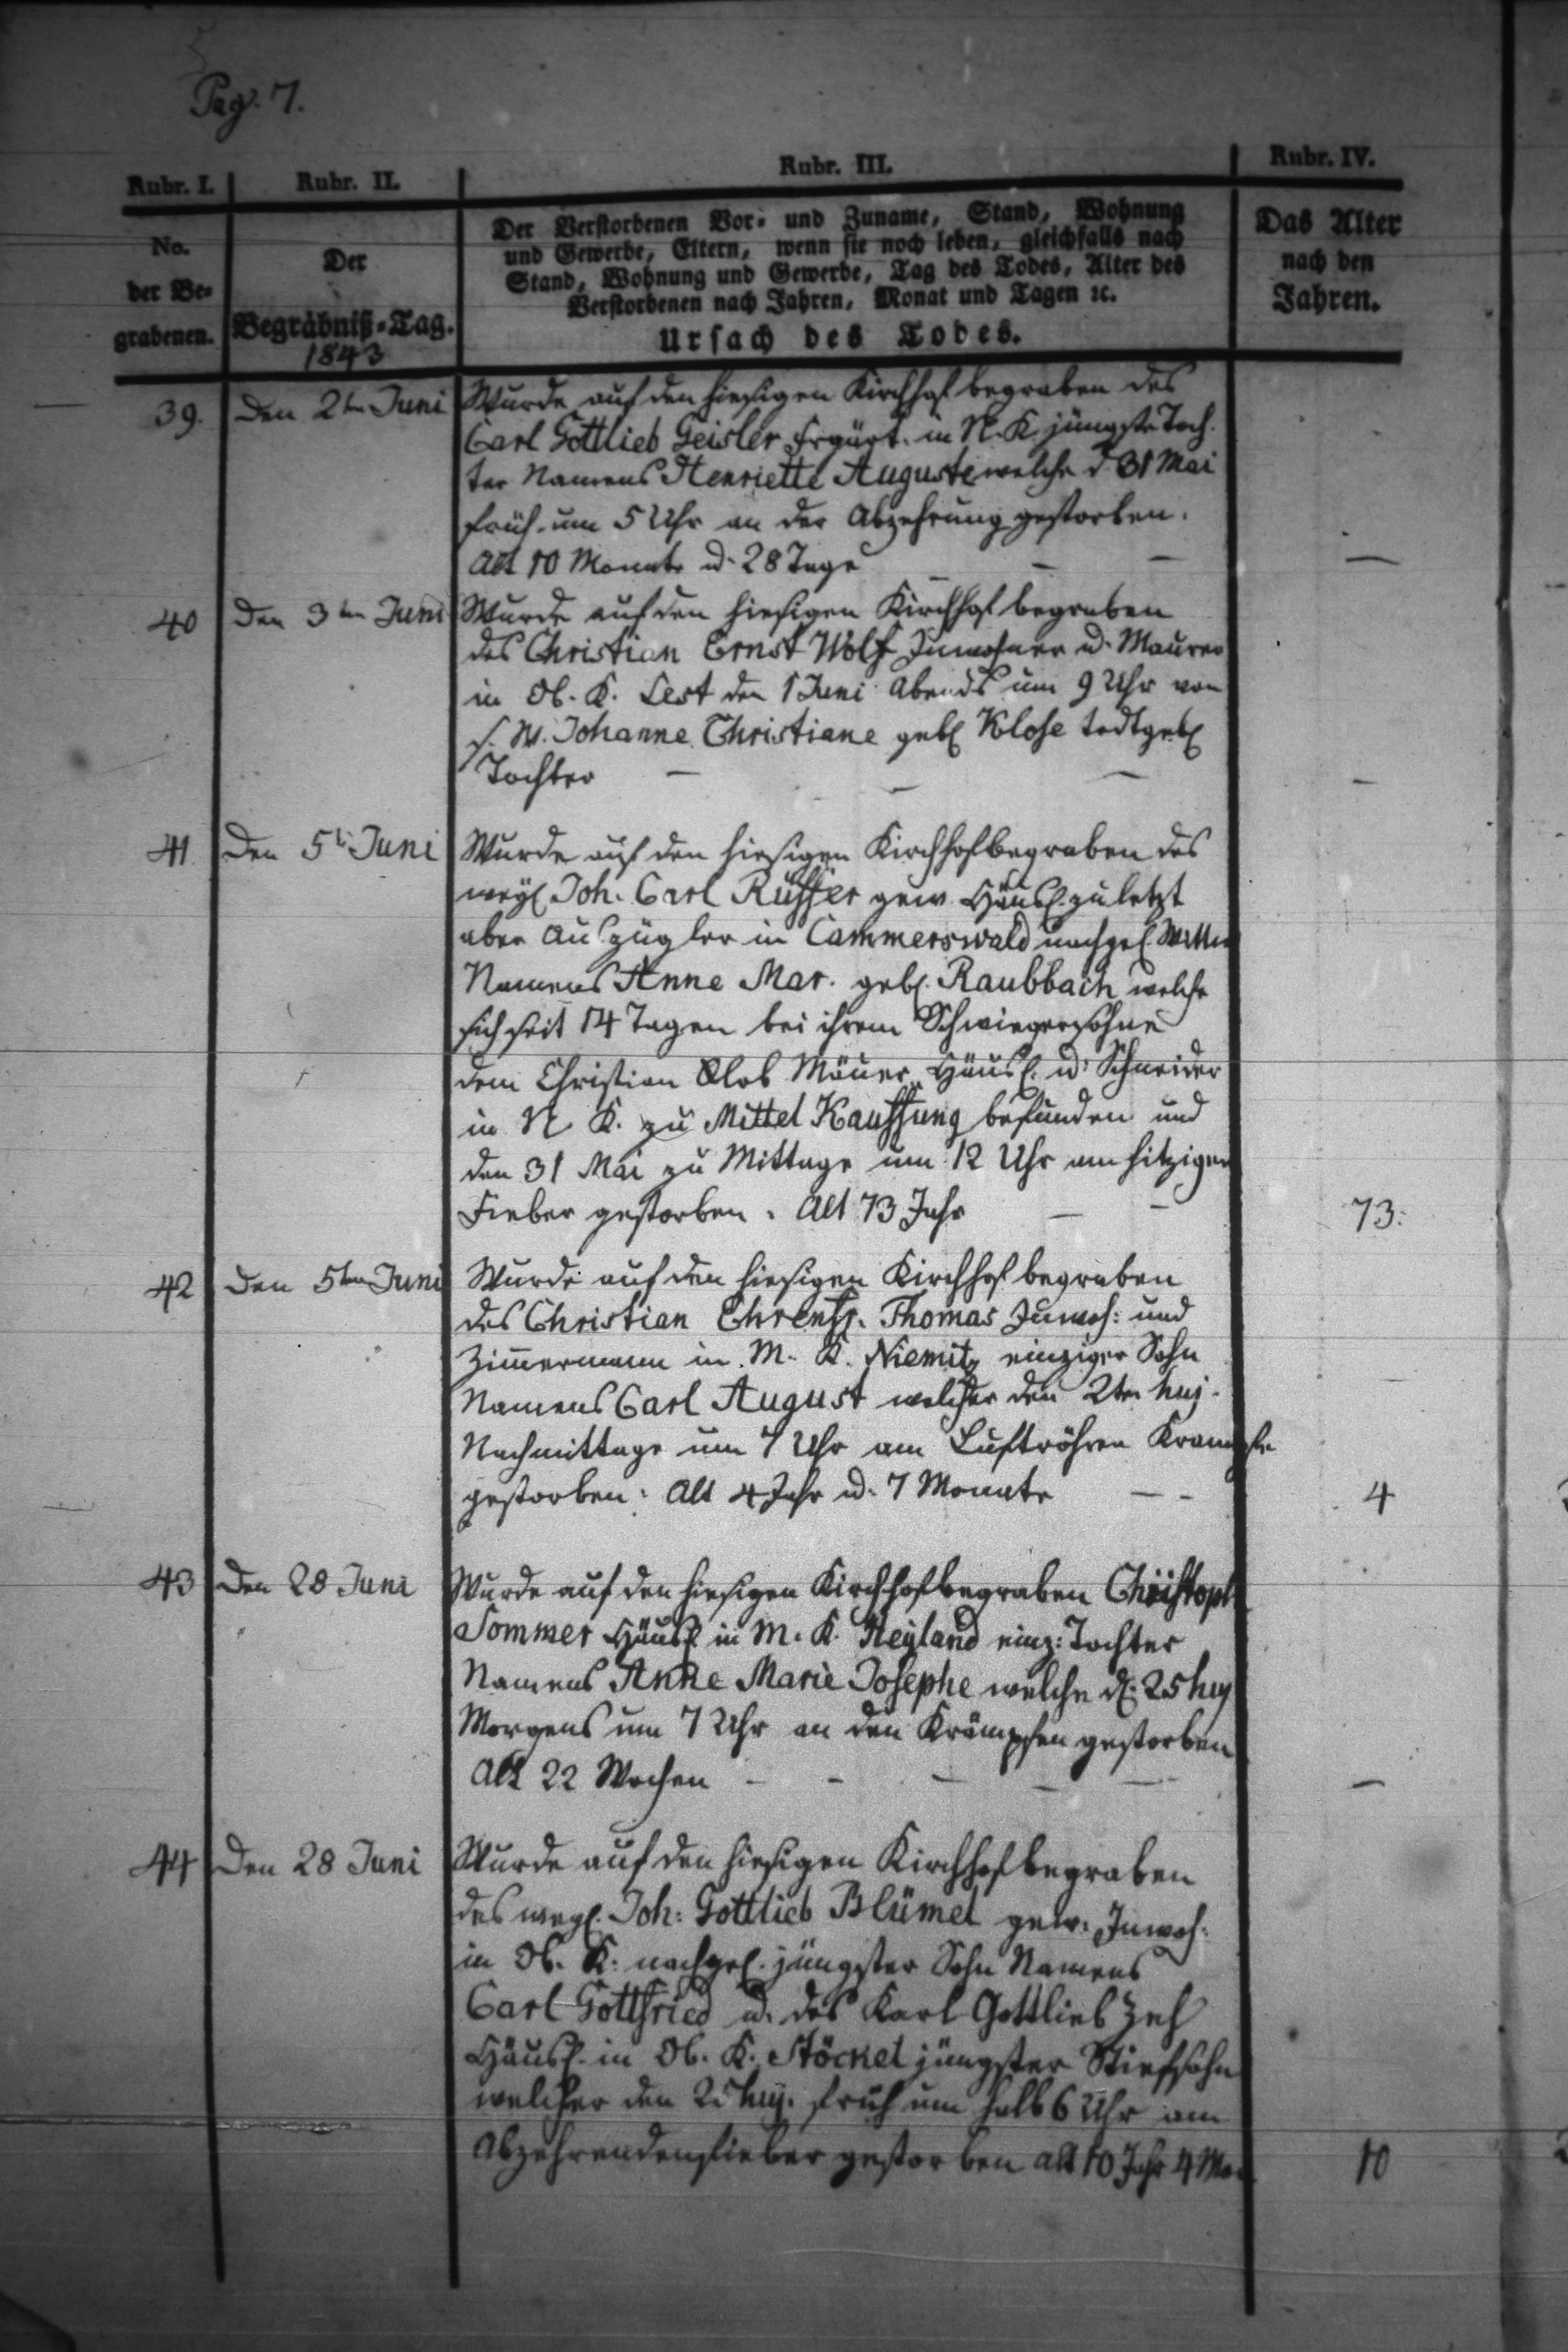 Pag. 7.
Rubr. I. Rubr. II. Rubr. III. Rubr. IV.
No. der Begrabenen.
Der Begräbniß-Tag.
1843
Der Verstorbenen Vor- und Zuname, Stand, Wohnung
und Gewerbe, Eltern, wenn sie noch leben, gleichfalls nach
Stand, Wohnung und Gewerbe, Tag des Todes, Alter des
Verstorbenen nach Jahren, Monat und Tagen ꝛc.
Ursach des Todes.
Das Alter
nach den
Jahren.
39. Den 2ten Juni Wurde auf den hiesigen Kirchhof begraben des
Carl Gottlieb Geisler Frgärt. in N. K. jüngste Toch-
ter Namens Henriette Auguste welche d 31 Mai
früh um 5 Uhr an der Abzehrung gestorben.
Alt 10 Monate u. 28 Tage — — —
40 Den 3ten Juni Wurde auf den hiesigen Kirchhof begraben
des Christian Ernst Wolf Inwohner u. Maurer
in Ob. K. Lest den 1 Juni Abends um 9 Uhr von
s. W. Johanne Christiane geb. Klose todtgeb.
Tochter — — — —
41. Den 5t Juni Wurde auf den hiesigen Kirchhof begraben des
weyl. Joh. Carl Ruffer gew. Häusl. zuletzt
aber Auszügler in Cammerswald nachgel. Wittw
Namens Anne Mar. geb. Raubbach welche
sich seit 14 Tagen bei ihrem Schwiegersohne
dem Christian Glob Mäuer Häusl. u. Schneider
in N. K. zu Mittel Kauffung befunden und
den 31 Mai zu Mittage um 12 Uhr am hitzigen
Fieber gestorben. Alt 73 Jahr — — 73.
42 Den 5ten Juni Wurde auf den hiesigen Kirchhof begraben
des Christian Ehrenfr. Thomas Inwoh: und
Zimmermann in M. K. Niemitz einziger Sohn
Namens Carl August welcher den 2ten huj.
Nachmittage um 7 Uhr am Luftröhren Krampfe
gestorben: Alt 4 Jahr u. 7 Monate — — 4
43 Den 28 Juni Wurde auf den hiesigen Kirchhof begraben Christoph
Sommer Häusl. in M. K. Heyland einz: Tochter
Namens Anne Marie Josephe welche d. 25 huj
Morgens um 7 Uhr an den Krämpfen gestorben
Alt 22 Wochen — — — — — —
44 Den 28 Juni Wurde auf den hiesigen Kirchhof begraben
des weyl. Joh: Gottlieb Blümel gew. Inwoh:
in Ob. K. nachgel. jüngster Sohn Namens
Carl Gottfried u. des Karl Gottlieb Zeh
Häusl. in Ob. K. Stöckel jüngster Stiefsohn
welcher den 25 huj. früh um halb 6 Uhr am
Abzehrendenfieber gestorben alt 10 Jahr 4 Mo. 10